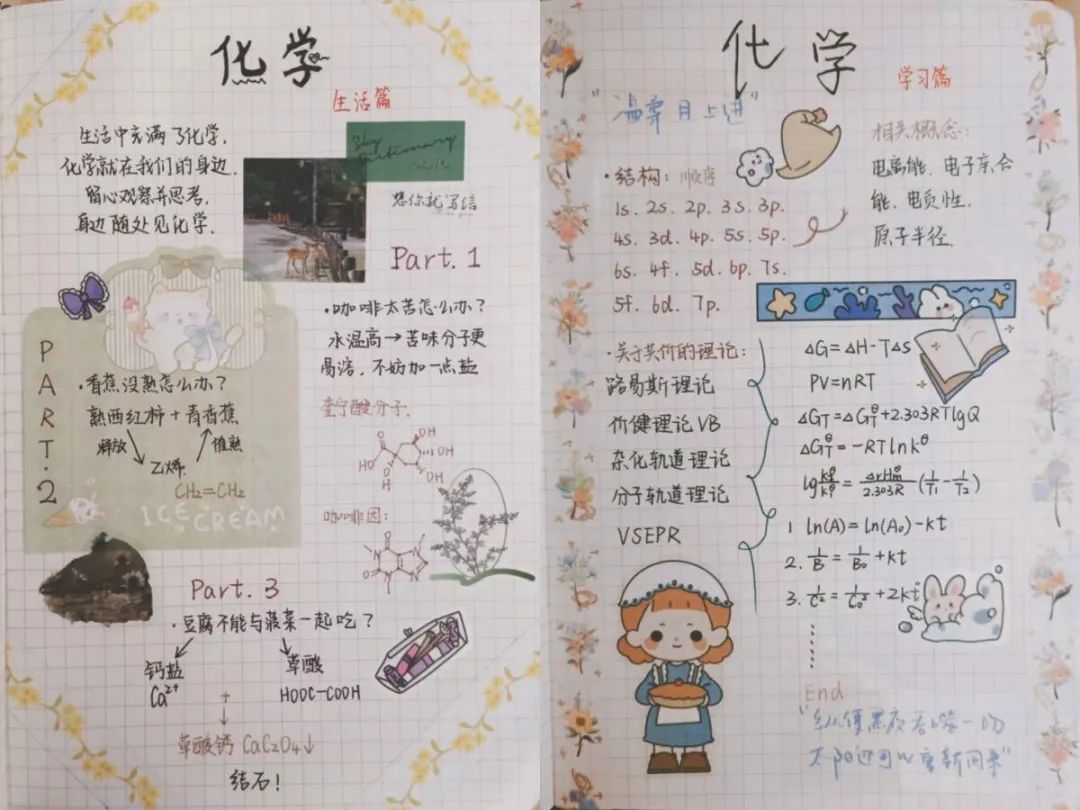 化学
生活篇
生活中充满了化学,
化学就在我们的身边.
留心观察并思考,
身边随处见化学.
Sky
Dictionary
想你就写信
Part.1
·咖啡太苦怎么办?
水温高→苦味分子更
易溶,不妨加一点盐
奎宁酸分子.
HO OH
O
HO
OH
OH
咖啡因:
O
N
N
O
N
N
PART.2
·香蕉没熟怎么办?
熟西红柿+青香蕉
释放 催熟
乙烯
CH₂=CH₂
ICE CREAM
Part.3
·豆腐不能与菠菜一起吃?
钙盐 草酸
Ca²⁺ + HOOC-COOH
草酸钙 CaC₂O₄↓
结石!
化学
学习篇
"温柔且上进"
·结构:顺序
1s. 2s. 2p. 3s. 3p.
4s. 3d. 4p. 5s. 5p.
6s. 4f. 5d. 6p. 7s.
5f. 6d. 7p.
相关概念:
电离能.电子亲合
能.电负性.
原子半径.
·关于共价的理论:
路易斯理论
价健理论VB
杂化轨道理论
分子轨道理论
VSEPR
ΔG=ΔH-TΔs
PV=nRT
ΔG_T=ΔG_T^θ+2.303RTlgQ
ΔG_T^θ=-RTlnk^θ
lg K₂^θ/K₁^θ = ΔrHm^θ/2.303R (1/T₁-1/T₂)
1 ln(A)=ln(A₀)-kt
2. 1/B=1/B₀+kt
3. 1/C²=1/C₀²+2kt
End
"纵使黑夜吞噬一切
太阳还可以重新回来"